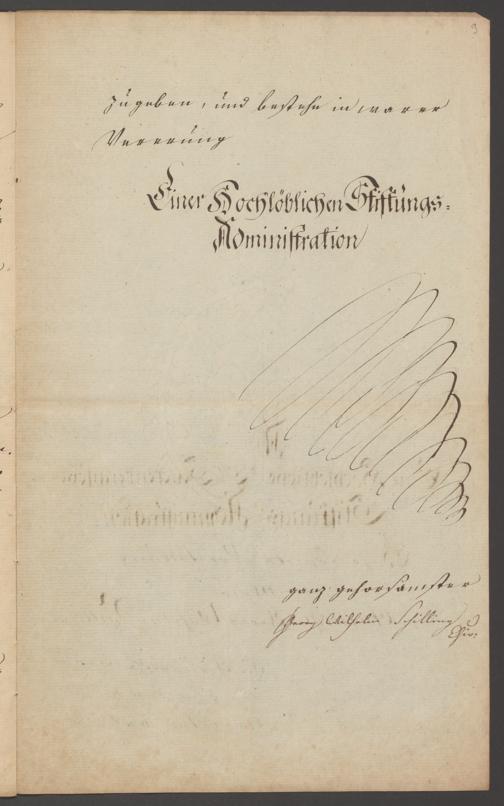 3
zugeben, und bestehe in warer
Vererung
Einer Hochlöblichen Stiftungs-
Administration
ganz gehorsamster
Georg Wilhelm Schilling
Chir: